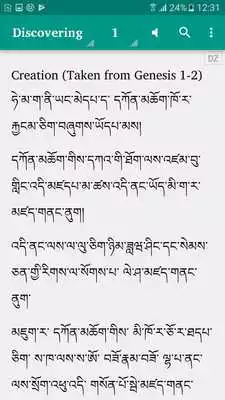 24% 12:31
Discovering 1
DZ
Creation (Taken from Genesis 1-2)
ཧེ་མ་ག་ནི་ཡང་མེདཔ་ད་ དཀོན་མཆོག་ཁོ་ར་
རྐྱངམ་ཅིག་བཞུགས་ཡོདཔ་མས།
དཀོན་མཆོག་གིས་དཀའ་གི་ཐོག་ལས་འཛམ་བུ་
གླིང་འདི་མཛདཔ་མ་ཚས་འདི་ནང་ཡོད་མི་ག་ར་
མཛད་གནང་ནུག།
འདི་ནང་ལས་ལ་ལུ་ཅིག་ཉིམ་ཟླཝ་ཤིང་དང་སེམས་
ཅན་གྱི་རིགས་ལ་སོགས་པ་ ལེ་ཤ་མཛད་གནང་
ནུག་
མཇུག་ར་ དཀོན་མཆོག་གིས་ མི་ཁོ་ར་ཅོ་ར་ཐདཔ་
ཅིག་ ས་ཁ་ལས་ས་ཨོ་ བཟོ་རྣམ་བཟོ་ ལྷ་པ་ནང་
ལས་སྲོག་འཕུ་འདི་ གསོན་པོ་སྦེ་མཛད་གནང་